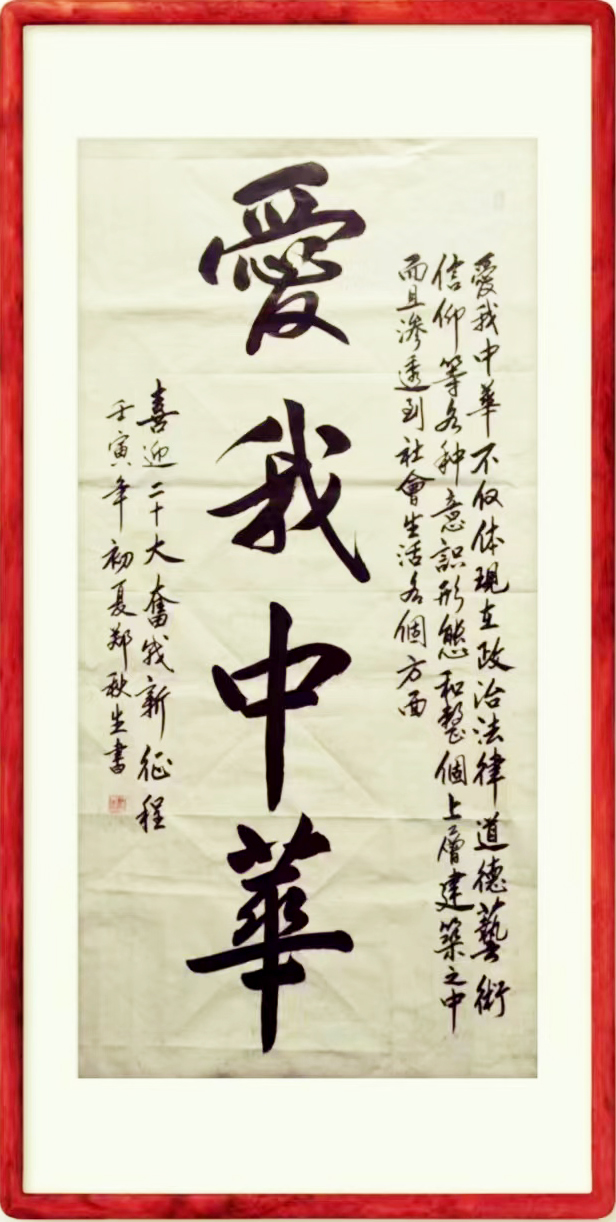 愛我中華不仅体現在政治法律道德藝術
信仰等各种意識形態和整個上層建築之中
而且渗透到社會生活各個方面
愛我中華
喜迎二十大奮我新征程
壬寅年初夏郑秋生書